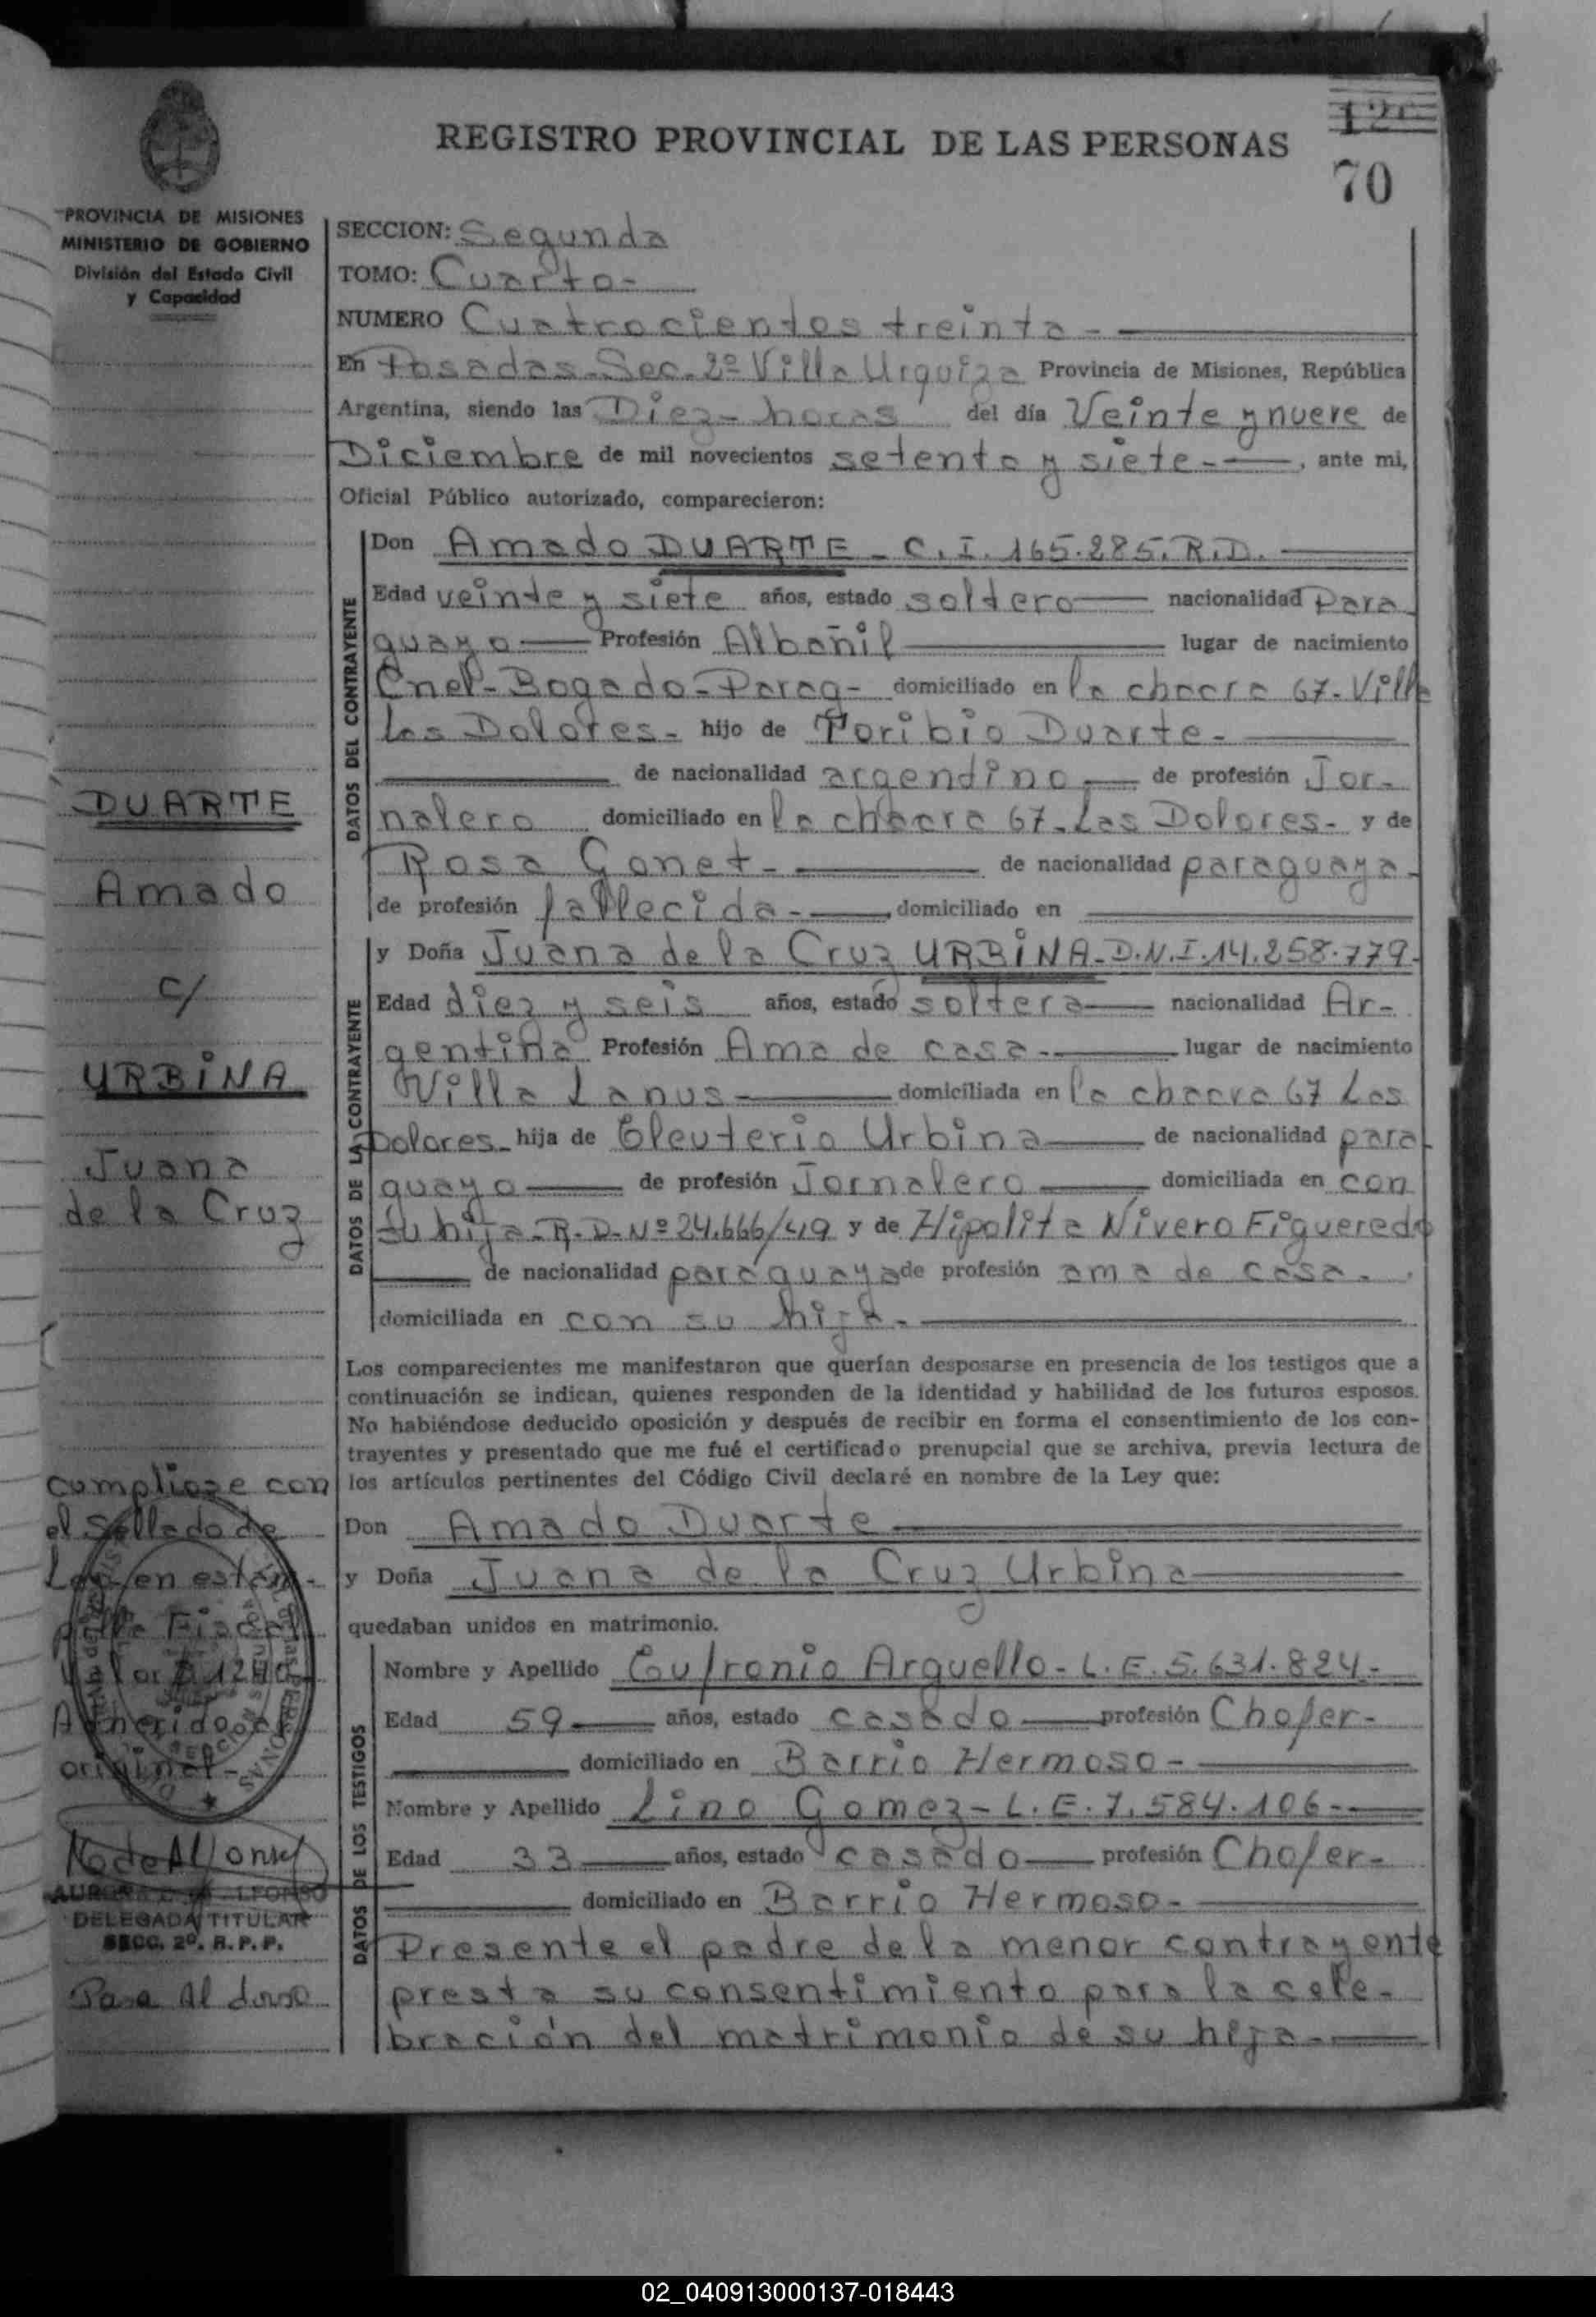 REGISTRO PROVINCIAL DE LAS PERSONAS
70
PROVINCIA DE MISIONES
MINISTERIO DE GOBIERNO
División del Estado Civil
y Capacidad
SECCION: Segunda
TOMO: Cuarto-
NUMERO Cuatrocientos treinta-
En Posadas-Sec-2º Villa Urquiza Provincia de Misiones, República
Argentina, siendo las Diez- horas del día Veinte y nueve de
Diciembre de mil novecientos setenta y siete-, ante mi,
Oficial Público autorizado, comparecieron:
DATOS DEL CONTRAYENTE
Don Amado DUARTE - C.I. 165.285. R.D.
Edad veinte y siete años, estado soltero nacionalidad Para
guayo Profesión Albañil lugar de nacimiento
Cnel-Bogado-Parag- domiciliado en la chacra 67-Villa
Las Dolores- hijo de Toribio Duarte-
de nacionalidad argentino de profesión Jor-
nalero domiciliado en la chacra 67-Las Dolores- y de
Rosa Gonet- de nacionalidad paraguaya-
de profesión fallecida-, domiciliado en
DATOS DE LA CONTRAYENTE
y Doña Juana de la Cruz URBINA-D.N.I.14.258.779-
Edad diez y seis años, estado soltera nacionalidad Ar-
gentina Profesión Ama de casa- lugar de nacimiento
Villa Lanus domiciliada en la chacra 67 Las
Dolores- hija de Eleuterio Urbina de nacionalidad para
guayo de profesión Jornalero domiciliada en con
su hija-R.D-Nº 24.666/49 y de Hipolita Nivero Figueredo
de nacionalidad paraguaya de profesión ama de casa.
domiciliada en con su hija-
Los comparecientes me manifestaron que querían desposarse en presencia de los testigos que a
continuación se indican, quienes responden de la identidad y habilidad de los futuros esposos.
No habiéndose deducido oposición y después de recibir en forma el consentimiento de los con-
trayentes y presentado que me fué el certificado prenupcial que se archiva, previa lectura de
los artículos pertinentes del Código Civil declaré en nombre de la Ley que:
Don Amado Duarte
y Doña Juana de la Cruz Urbina
quedaban unidos en matrimonio.
DATOS DE LOS TESTIGOS
Nombre y Apellido Eufronio Arguello-L.E.5.631.824-
Edad 59 años, estado casado profesión Chofer-
domiciliado en Barrio Hermoso-
Nombre y Apellido Lino Gomez-L.E.7.584.106-
Edad 33 años, estado casado profesión Chofer-
domiciliado en Barrio Hermoso-
Presente el padre de la menor contrayente
presta su consentimiento para la cele-
bración del matrimonio de su hija-
DUARTE
Amado
c/
URBINA
Juana
de la Cruz
cumpliose con
el sellado de
Ley en estam-
pilla Fiscal
Valor $
Adherido al
original-
DELEGADA TITULAR
SECC. 2º. R.P.P.
Pasa al dorso
02_040913000137-018443